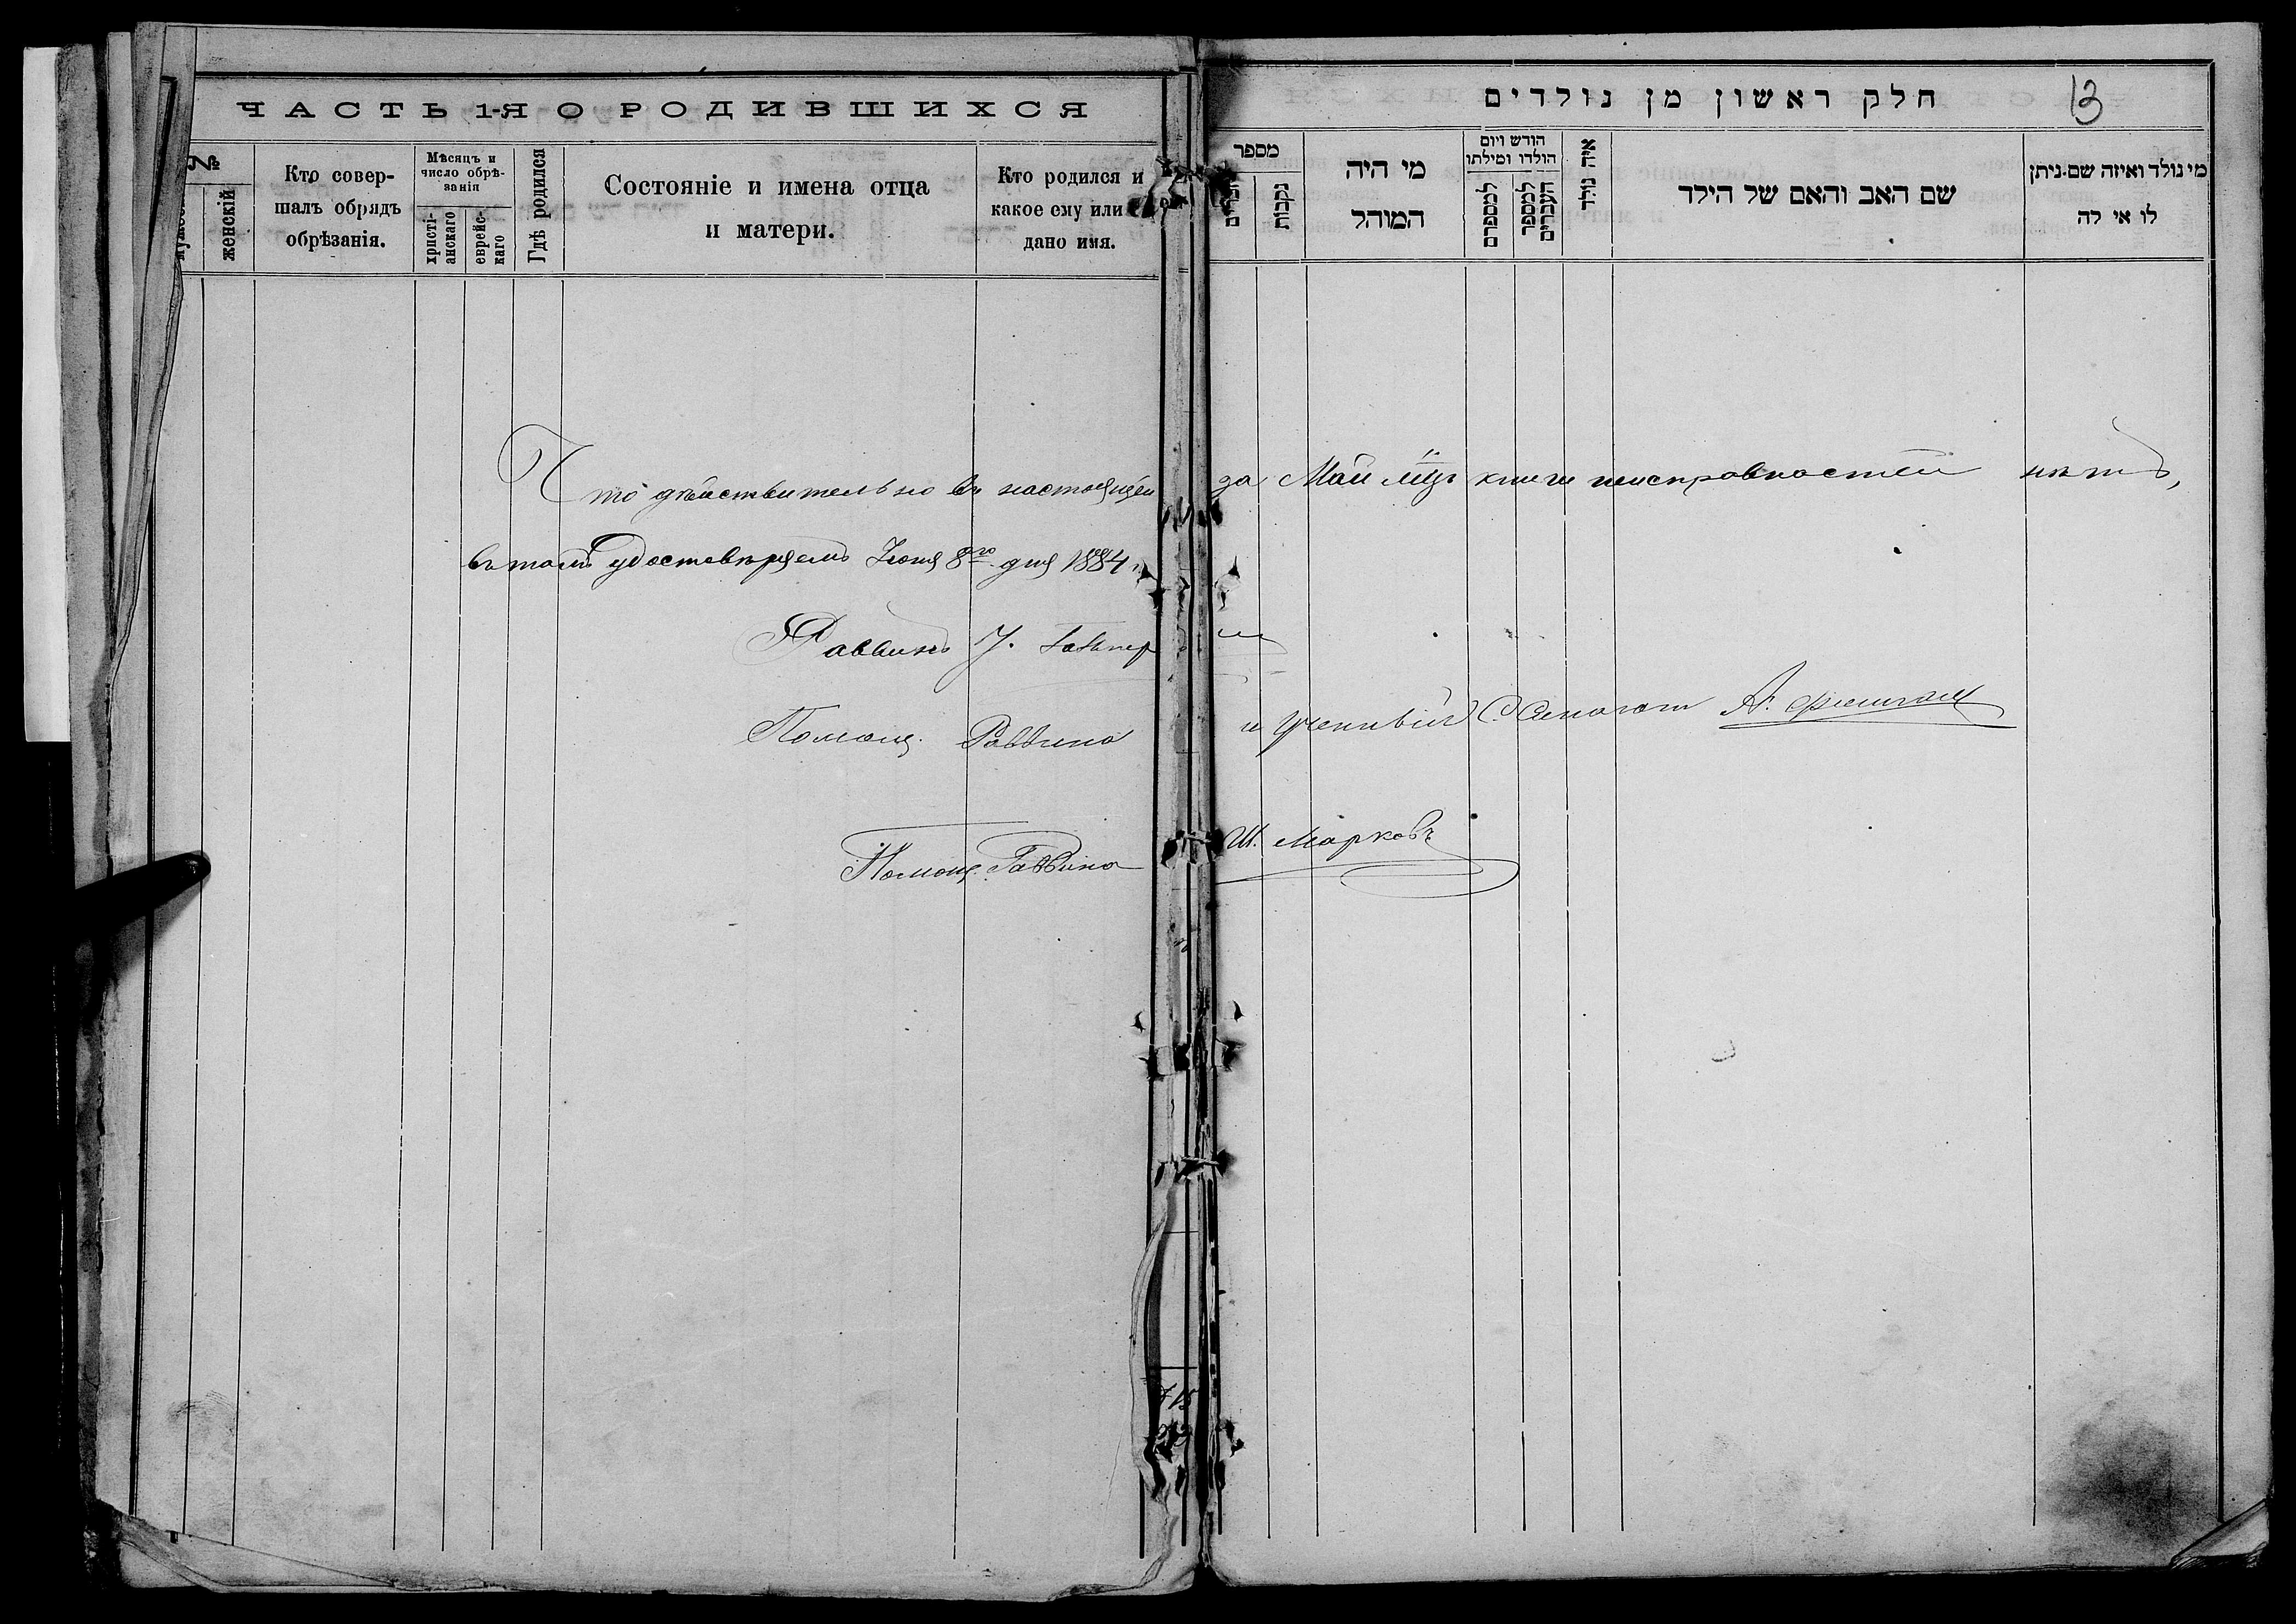 ЧАСТЬ 1-Я О РОДИВШИХСЯ
№
женскій
Кто совер-
шалъ обрядъ
обрѣзанія.
Мѣсяцъ и
число обрѣ-
занія
христі-
анскаго
еврейс-
каго
Гдѣ родился
Состояніе и имена отца
и матери.
Кто родился и
какое ему или
дано имя.
חלק ראשון מן נולדים
13
מספר
נקבות
מי היה
המוהל
חודש ויום
הולדו ומילתו
למספרם
למספר
העברים
איה נולד
שם האב והאם של הילד
מי נולד ואיזה שם ניתן
לו אי לה
Что дѣйствительно въ настоящей за Май мцъ книги неисправностей нѣтъ,
въ томъ удостовѣряемъ Іюня 8го дня 1884
Раввинъ
Помощ. Раввина и Ученый А.
Помощ. Раввина Ш. Марковъ